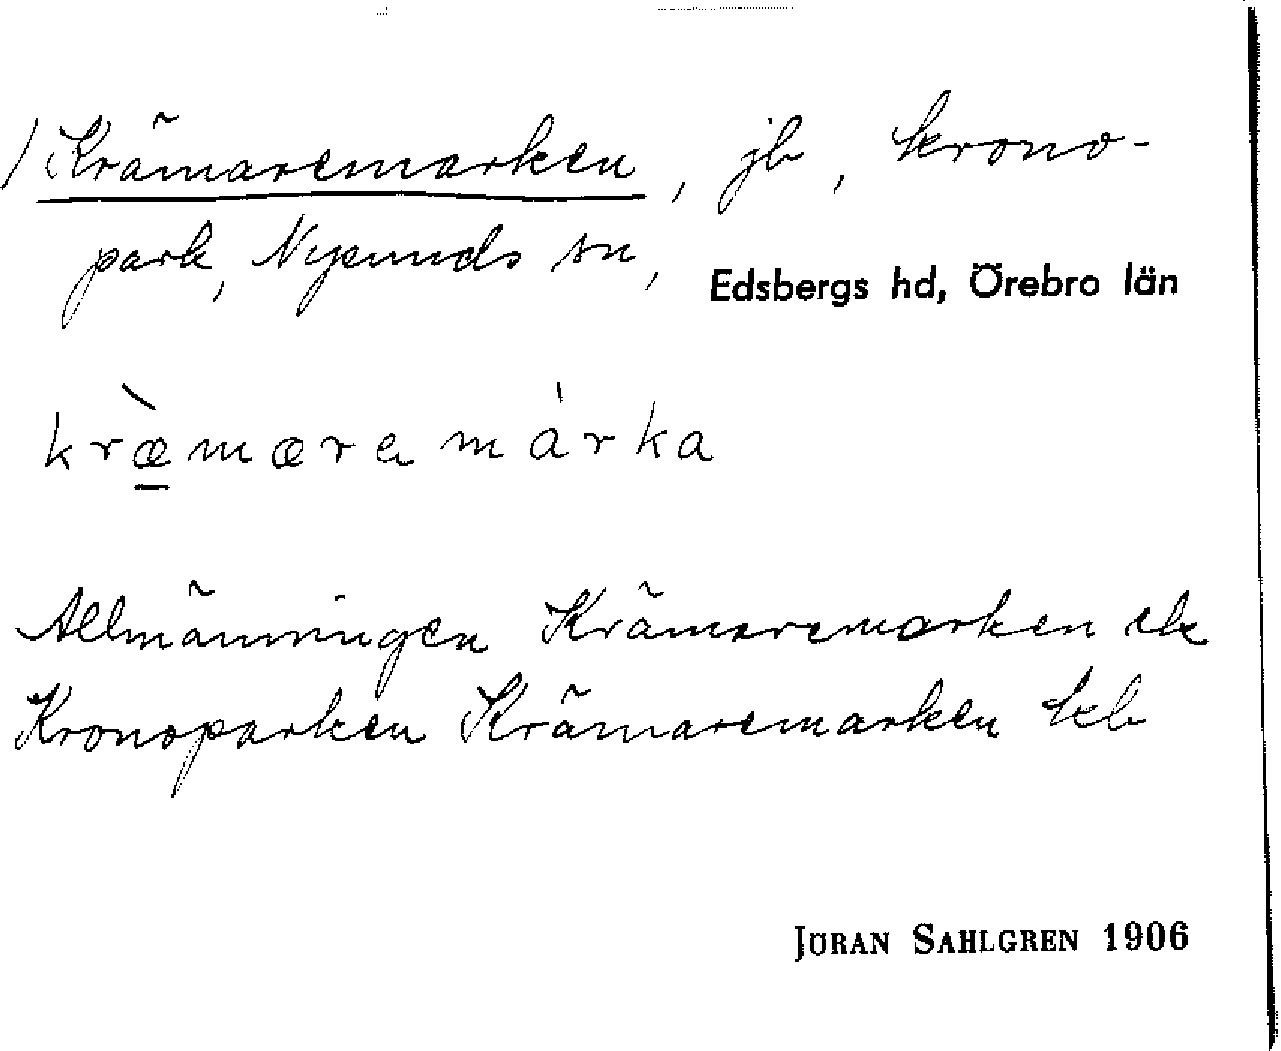 1) Krämaremarken, jb, krono-
park, Nysunds sn, Edsbergs hd, Örebro län
kræ̀mæra màrka
Allmänningen Krämaremarken ek
Kronoparken Krämaremarken kb
JÖRAN SAHLGREN 1906